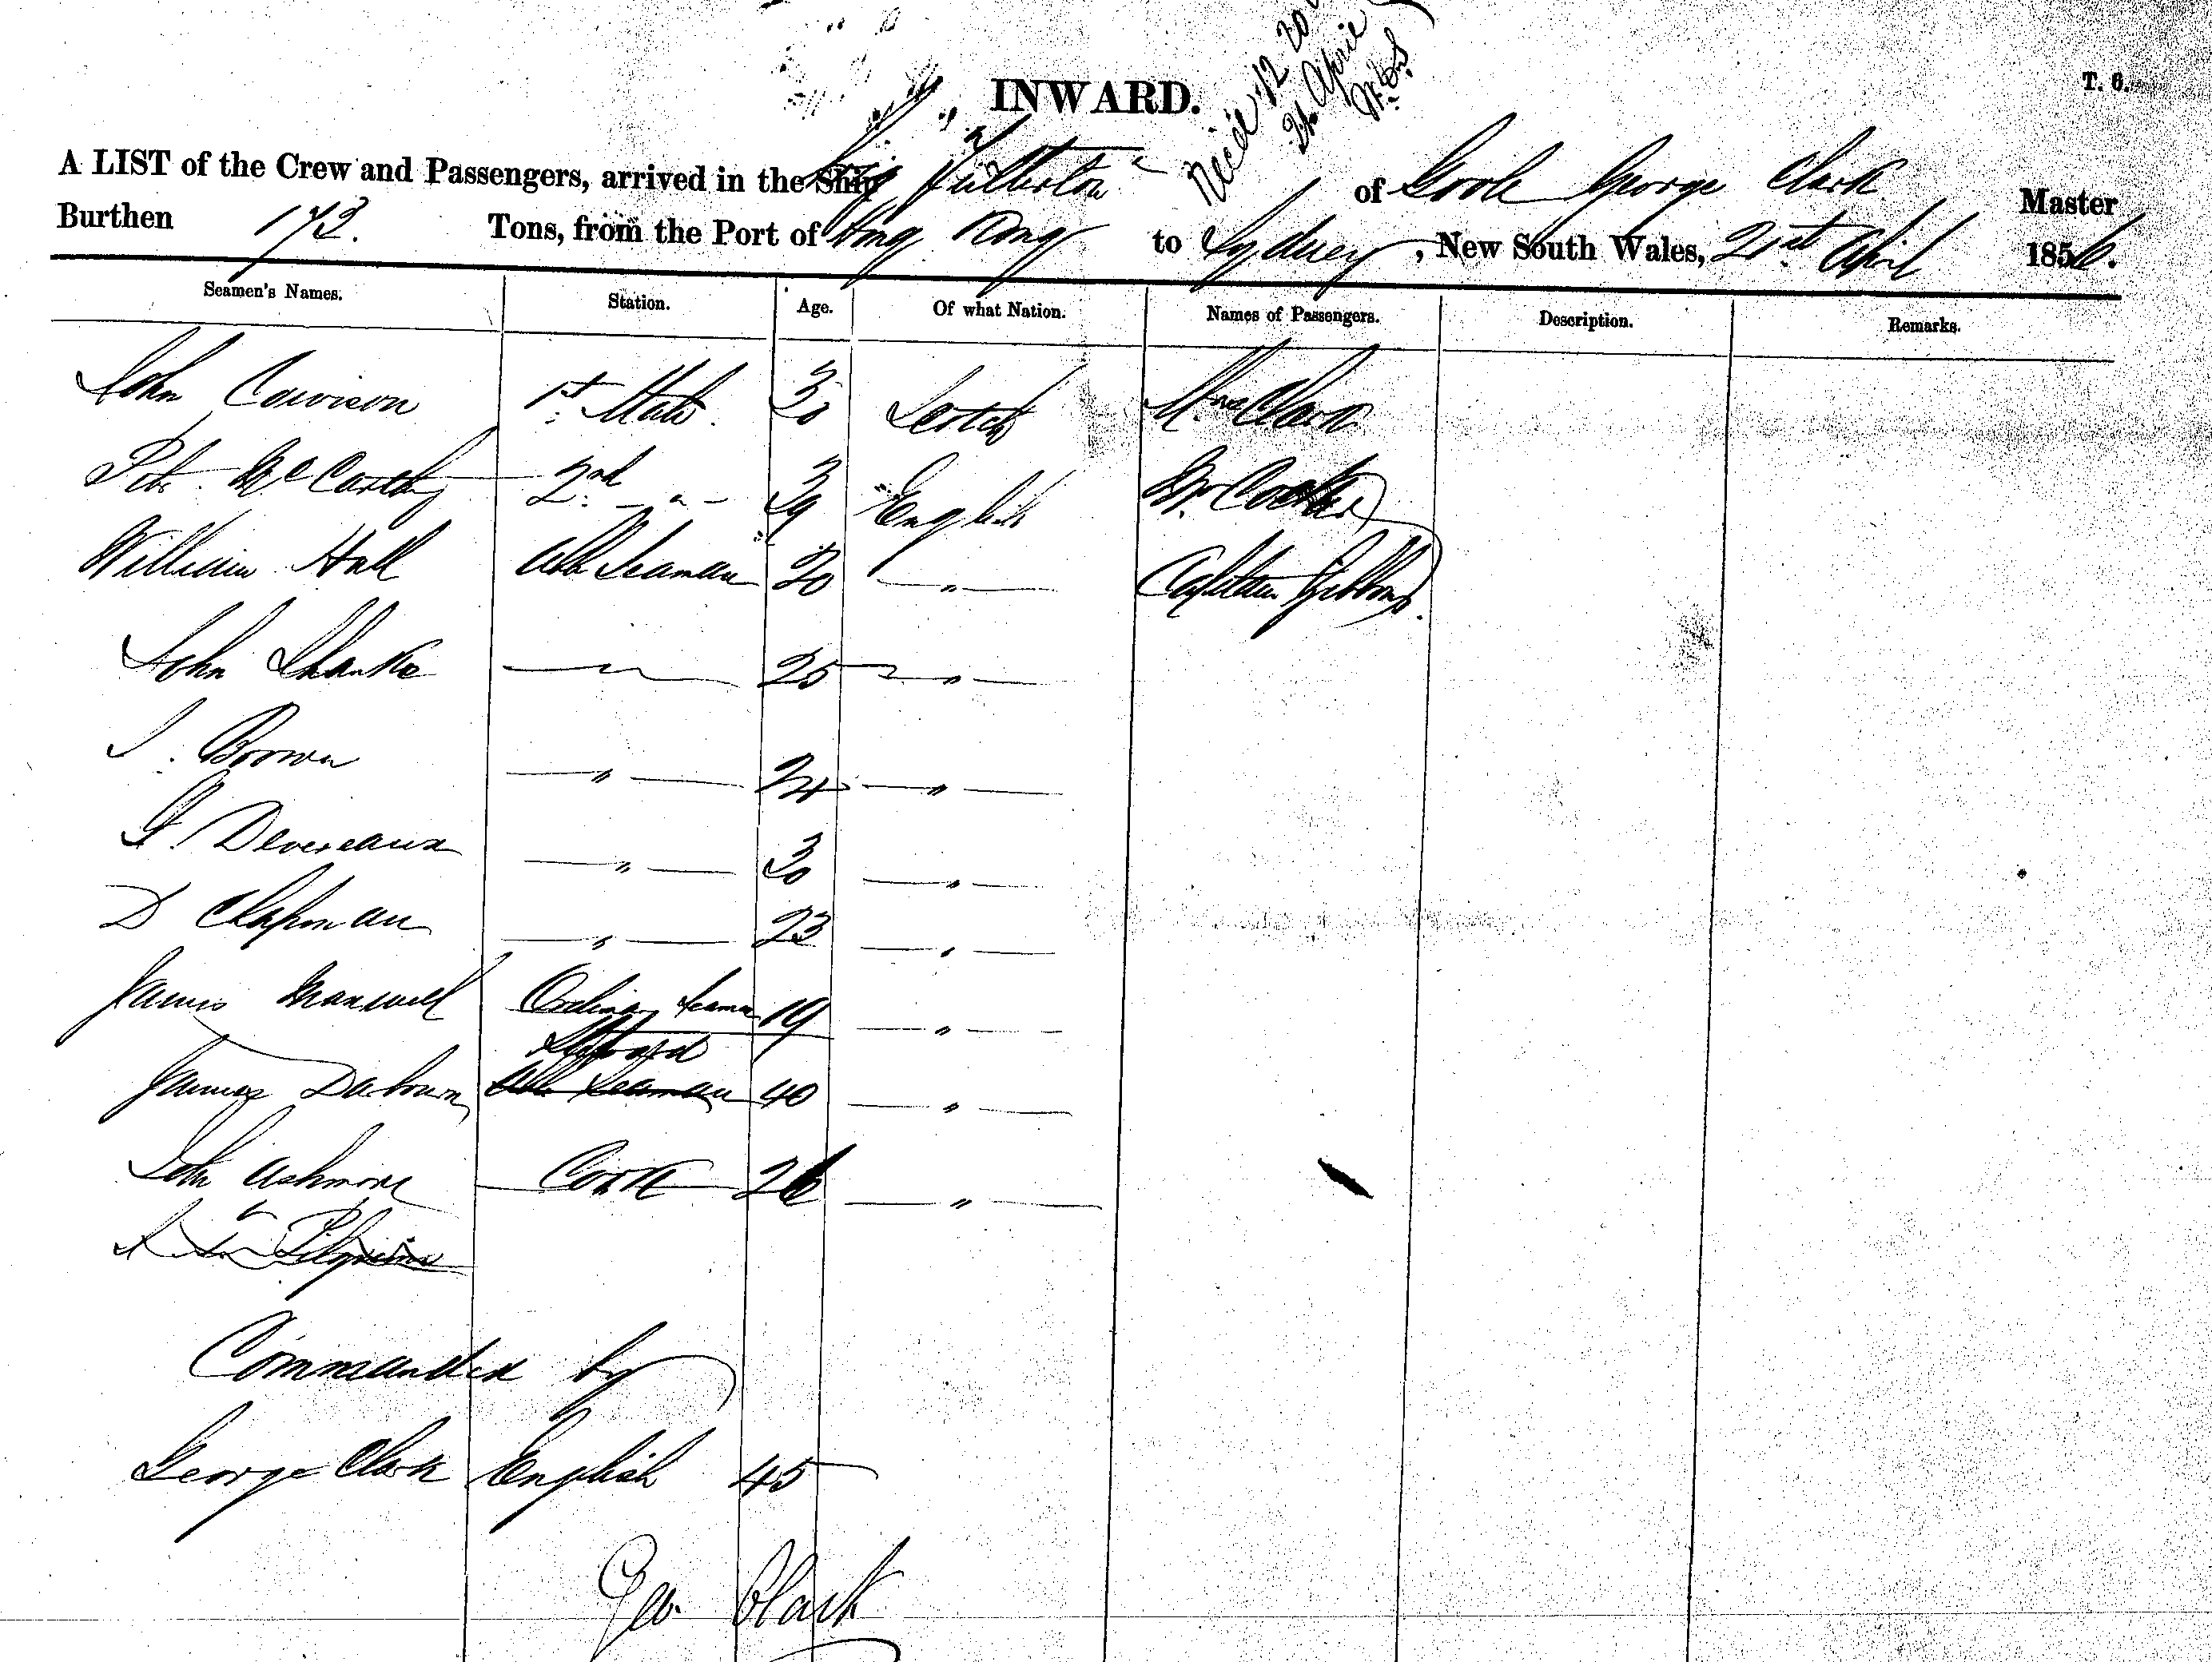 INWARD.
T. 6.
Recd 12 20
21 April
A LIST of the Crew and Passengers, arrived in the Ship Brig Fullerton of Goole George Clark Master
Burthen 173. Tons, from the Port of Hong Kong to Sydney, New South Wales, 21st April 1856.
Seamen's Names. Station. Age. Of what Nation. Names of Passengers. Description. Remarks.
John 1st Mate. 30 Scotch Mrs Clark
McCarthy 2nd -"- 39 English Mr.
William Hall Able Seaman 20 —"— Captain Gibbons.
John Shanks —"— 25 —"—
J. Brown —"— 24 —"—
Devereaux —"— 30 —"—
D Chapman —"— 23 —"—
James Maxwell Ordinary Seaman 19 —"—
Steward
James Able Seaman 40 —"—
John Ashmore Cook 26 —"—
Pilgrim
Commanded by
George Clark English 45
Geo. Clark